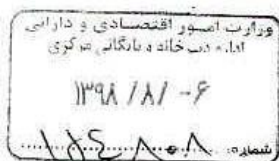 وزارت امور اقتصادی و دارائی
اداره دبیرخانه و بایگانی مرکزی
۱۳۹۸ /۸/ -۶
شماره: ۱۸۴۸۰۸